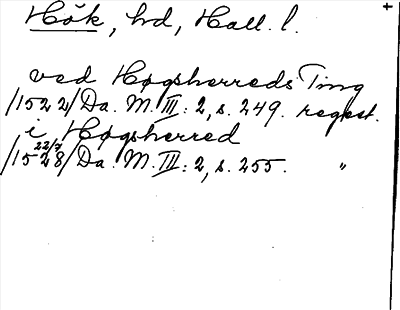 Hök, hd, Hall. l.
ved Høgsherreds Ting
/1522/ Da. M. III: 2, s. 249. regest.
i Høgsherred
/15 22/7 28/ Da. M. III: 2, s. 255. "